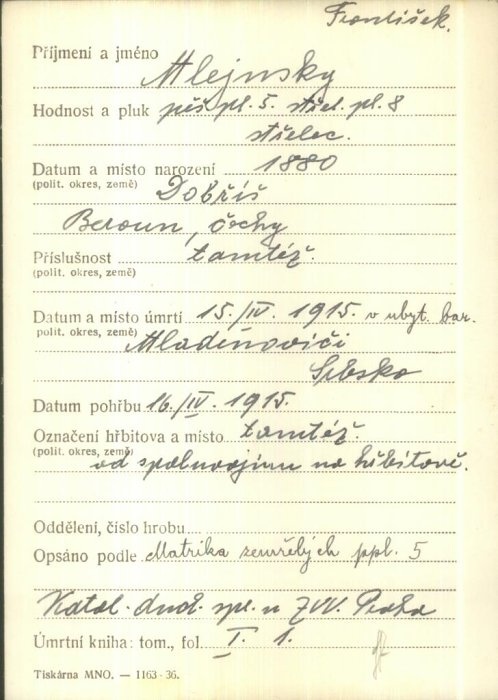 František.
Příjmení a jméno Mlejnsky
Hodnost a pluk pěš. pl. 5. střel. pl. 8
střelec.
Datum a místo narození 1880
(polit. okres, země) Dobříš
Beroun, Čechy
Příslušnost tamtéž.
(polit. okres, země)
Datum a místo úmrtí 15./IV. 1915. v ubyt. bar.
polit. okres, země) Mladenoviči
Srbsko
Datum pohřbu 16./IV. 1915.
Označení hřbitova a místo tamtéž.
(polit. okres, země)
od na hřbitově.
Oddělení, číslo hrobu
Opsáno podle Matrika zemřelých ppl. 5
Katol. duch. spr. u ZVV. Praha
Úmrtní kniha: tom., fol. I. 1.
Tiskárna MNO. — 1163-36.